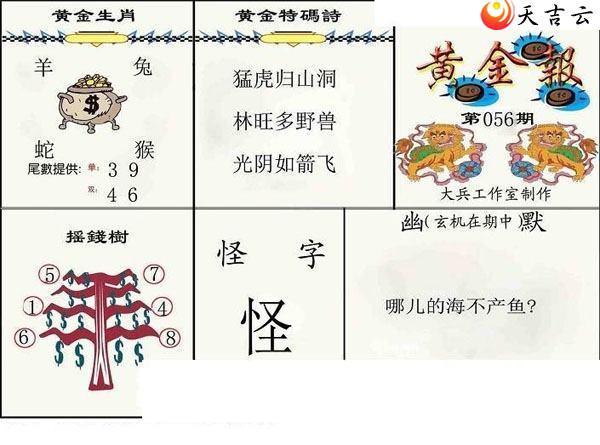 天吉云
黄金生肖
羊 兔
$
蛇 猴
尾數提供: 单: 3 9
双: 4 6
黄金特碼詩
猛虎归山洞
林旺多野兽
光阴如箭飞
黄金報
第056期
大兵工作室制作
摇錢樹
⑤ ⑦
① ④
⑥ ⑧
怪 字
怪
幽(玄机在期中)默
哪儿的海不产鱼?